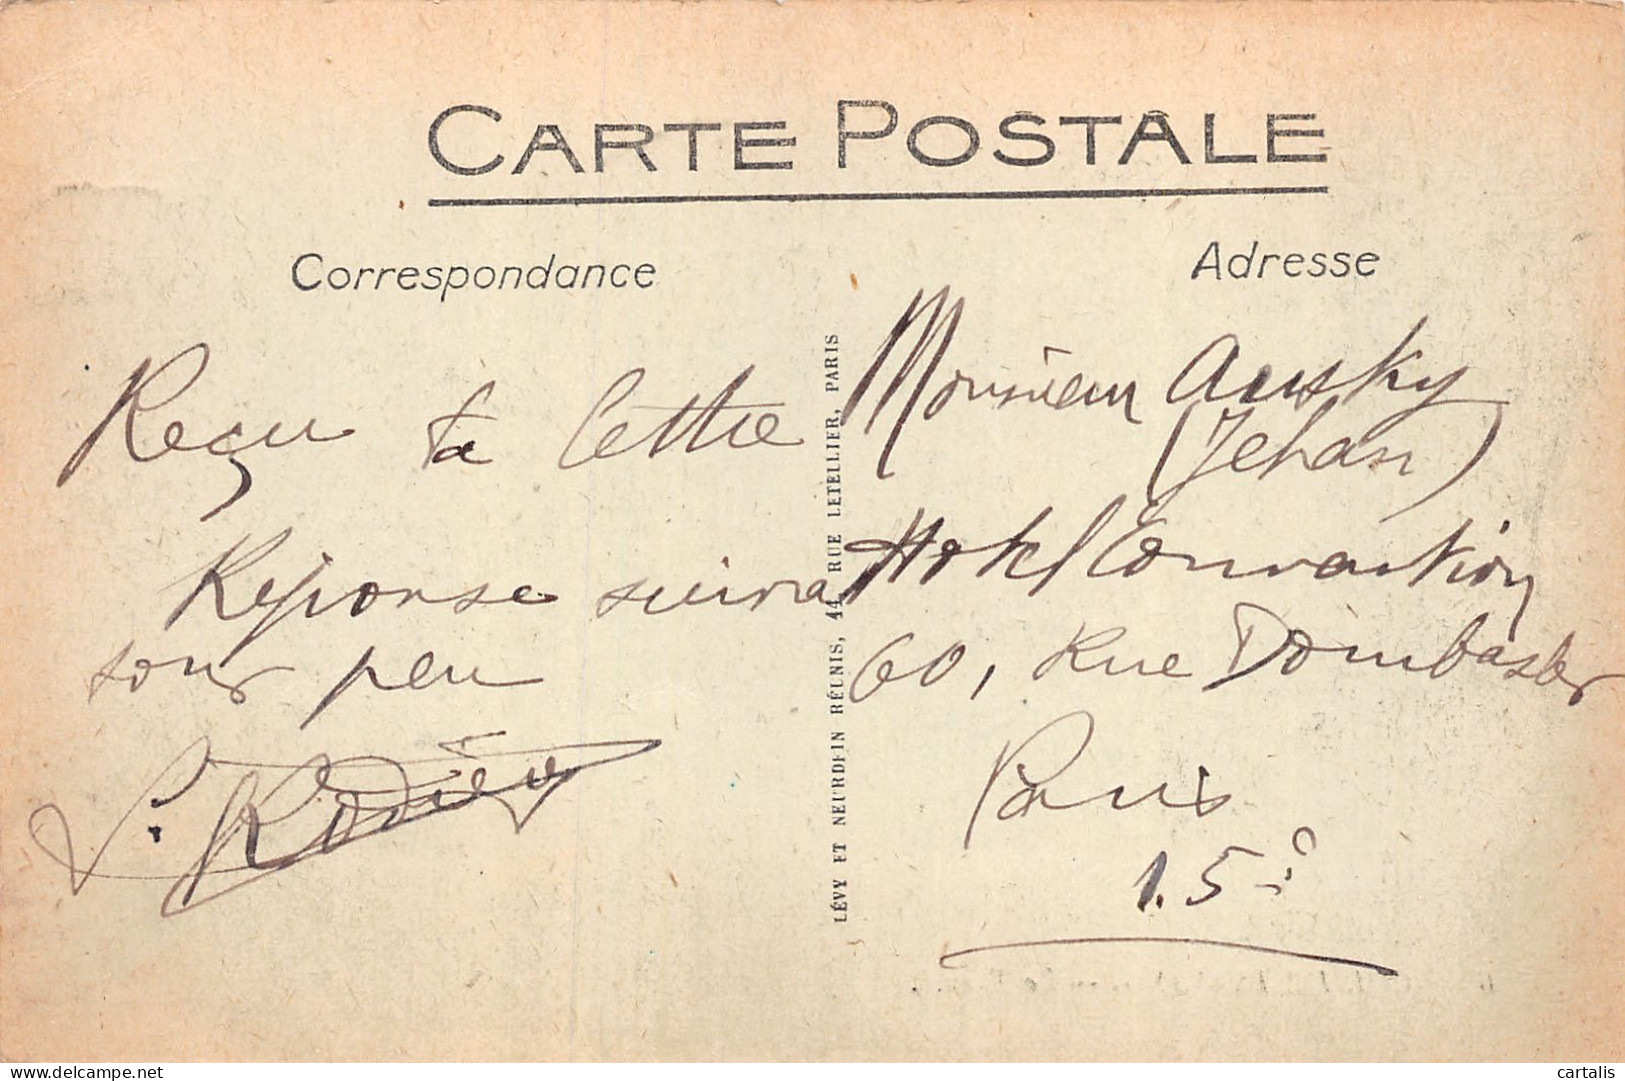 CARTE POSTALE
Correspondance
Adresse
Reçu ta lettre
Réponse suivra
sous peu
LÉVY ET NEURDEIN RÉUNIS, 44, RUE LETELLIER, PARIS
Monsieur Ausky
(Jehan)
Hotel Convention
60, Rue Dombasle
Paris
15e
delcampe.net
cartalis